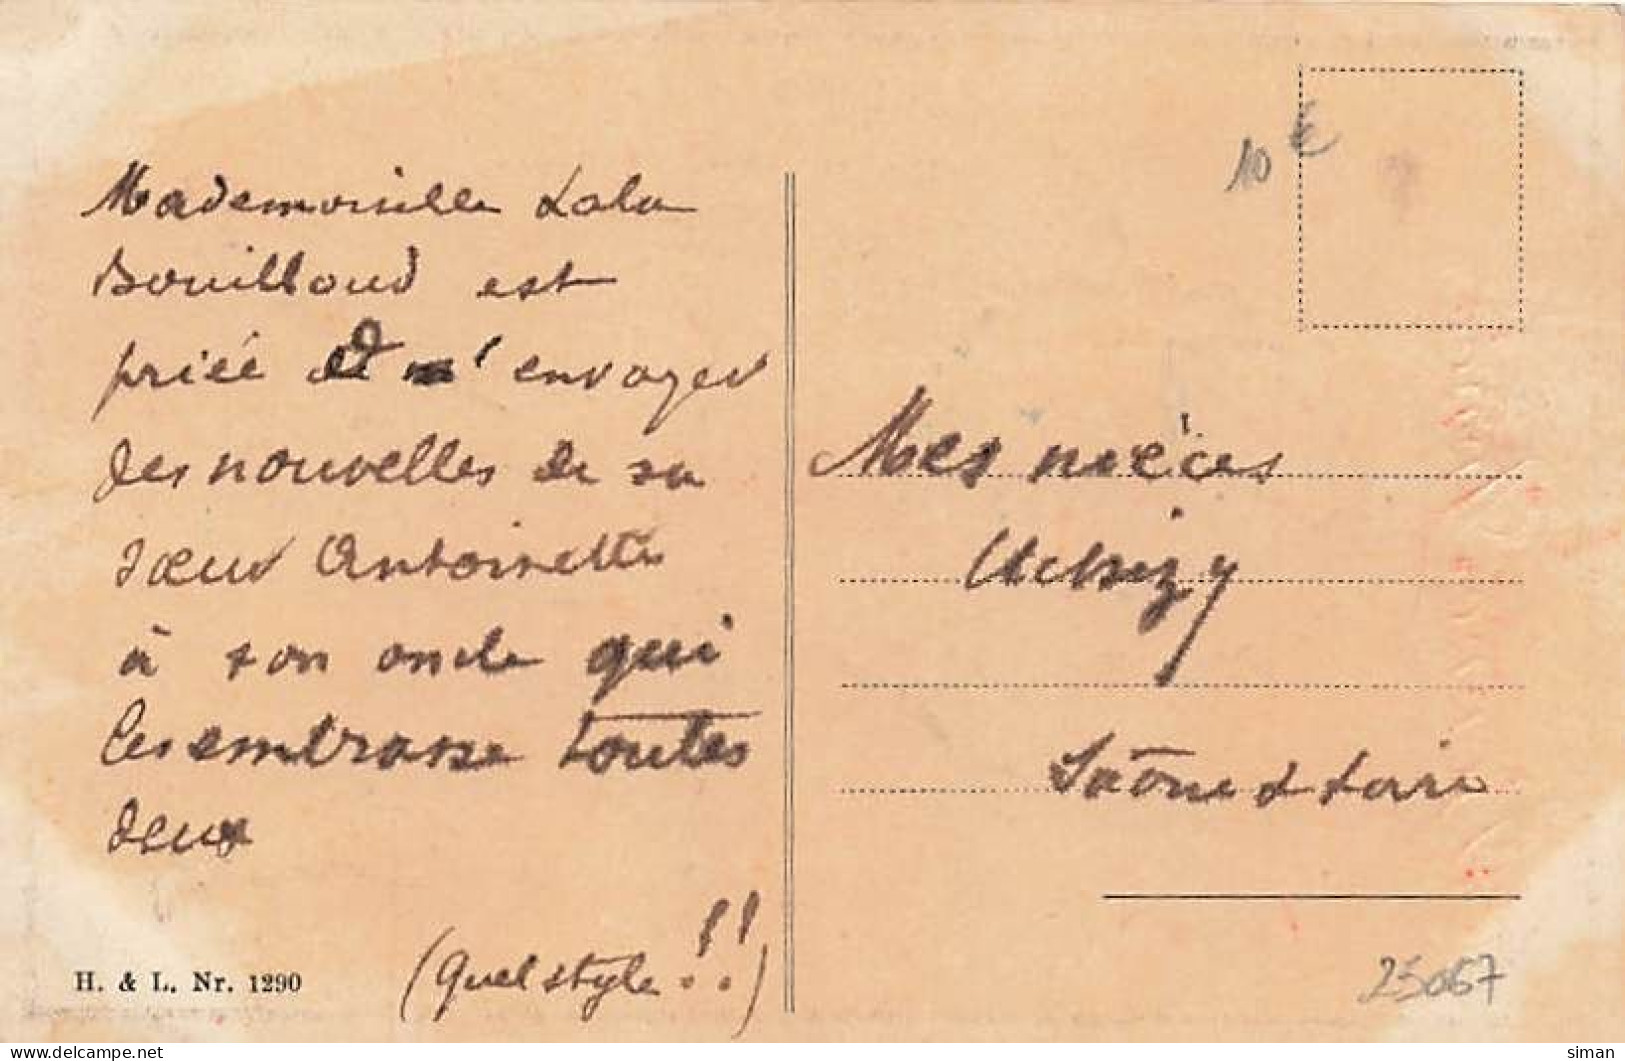 Mademoiselle Lola
Bouilloud est
priée de m'envoyer
des nouvelles de sa
sœur Antoinette
à son oncle qui
les embrasse toutes
deux
(Quel style!!)
H. & L. Nr. 1290
10 €
Mes nièces
Uchizy
Saône et Loire
25067
delcampe.net
siman